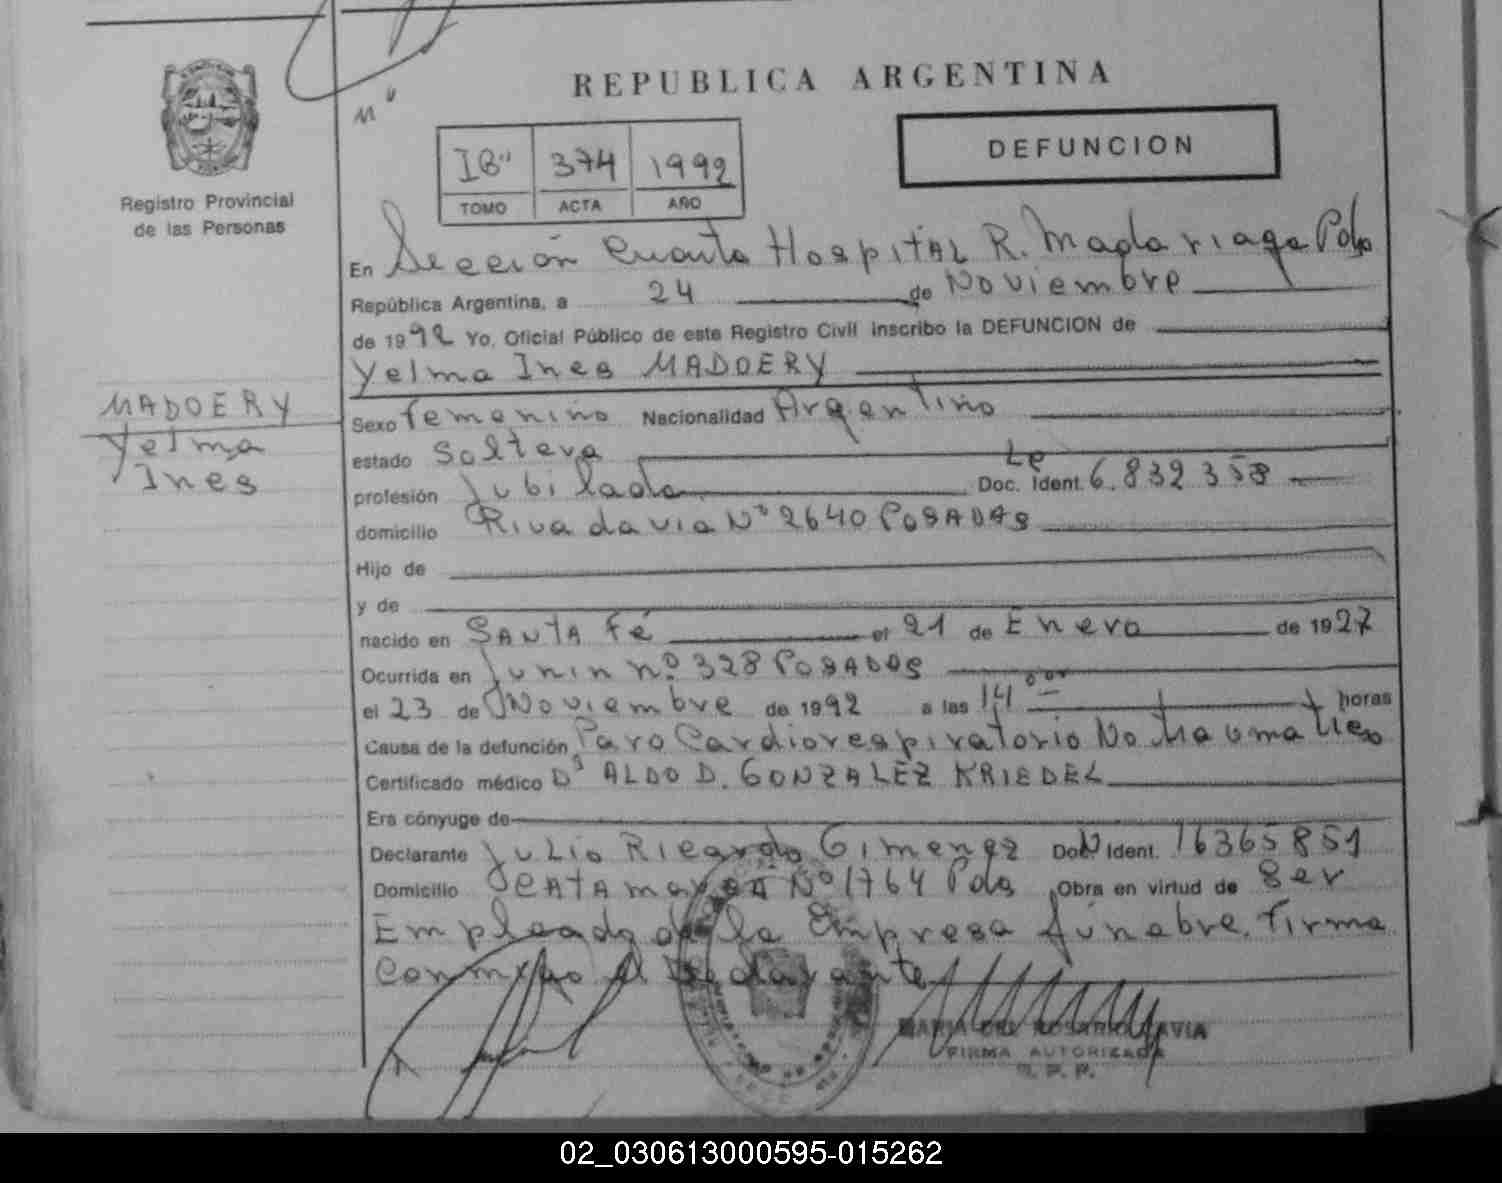 REPUBLICA ARGENTINA
DEFUNCION
IB" 374 1992
TOMO ACTA AÑO
Registro Provincial
de las Personas
En Sección Cuarta Hospital R. Madariaga Pdas
República Argentina, a 24 de Noviembre
de 1992 Yo, Oficial Público de este Registro Civil inscribo la DEFUNCION de
Yelma Ines MADOERY
MADOERY
Yelma
Ines
Sexo Femenino Nacionalidad Argentino
estado Soltera
profesión Jubilada Doc. Ident. Le 6.832.358
domicilio Rivadavia Nº 2640 POSADAS
Hijo de
y de
nacido en SANTA Fé el 21 de Enero de 1927
Ocurrida en Junin nº 328 POSADAS
el 23 de Noviembre de 1992 a las 14 horas
Causa de la defunción Paro Cardiorespiratorio No traumatico
Certificado médico Dr ALDO D. GONZALEZ KRIEDEL
Era cónyuge de
Declarante Julio Ricardo Gimenez Doc. Ident. 16365851
Domicilio Catamarca Nº 1764 Pdas Obra en virtud de Ser
Empleado de la Empresa fúnebre. Firma
Conmigo el Declarante
MARIA DEL ROSARIO
FIRMA AUTORIZADA
R. P. P.
02_030613000595-015262